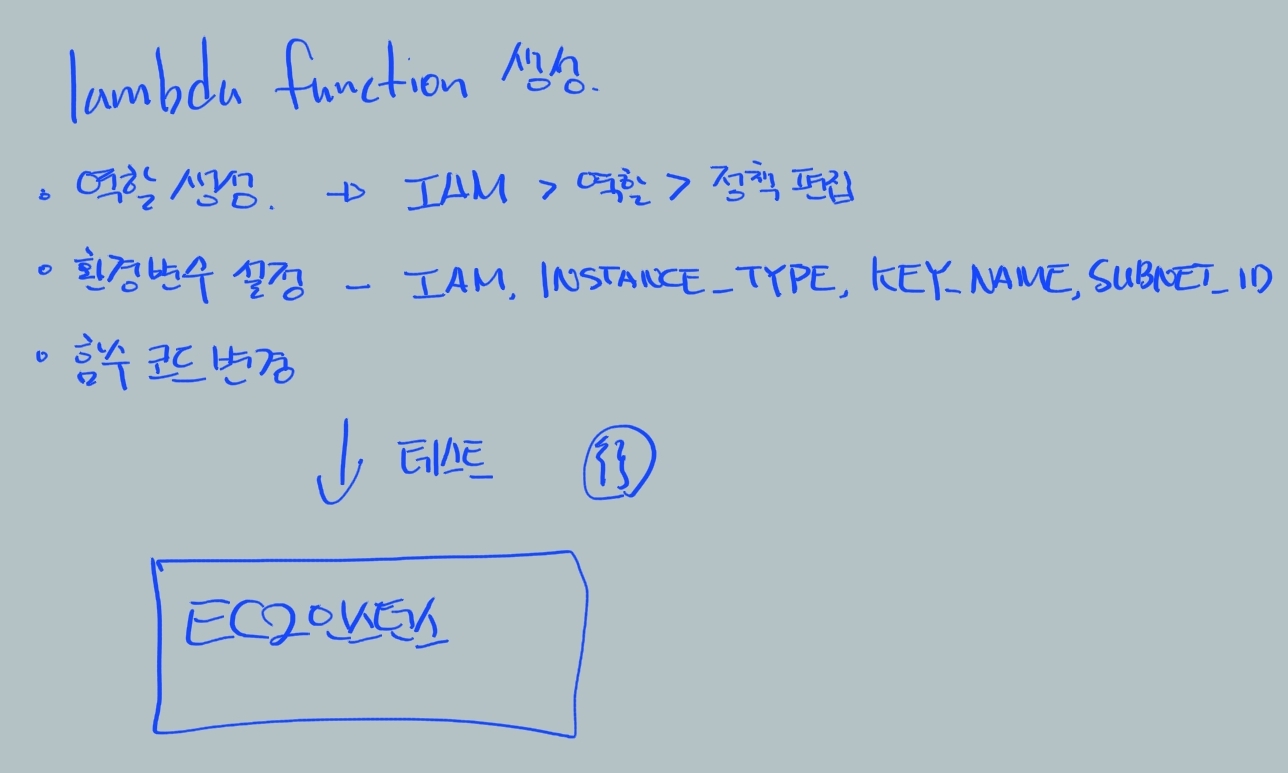 lambda function 생성.
• 역할 생성. → IAM > 역할 > 정책 편집
• 환경변수 설정 - IAM, INSTANCE_TYPE, KEY_NAME, SUBNET_ID
• 함수 코드 변경
↓ 테스트 {}
EC2인스턴스